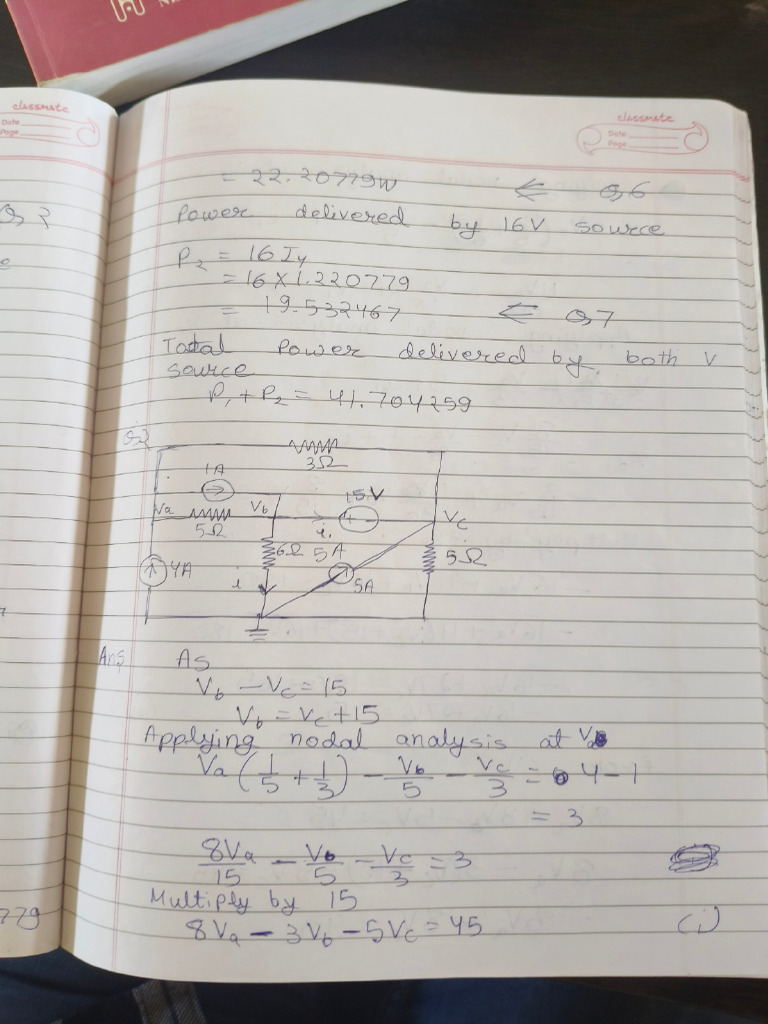 classmate
Date
Page
classmate
Date
Page
= 22.20779W ⇐ Q6
Power delivered by 16V source
P₂ = 16 Iy
= 16 × 1.220779
= 19.532467 ⇐ Q7
Total Power delivered by both V
source
P₁ + P₂ = 41.704259
3Ω
1A
15V
Va
Vb
Vc
5Ω
i.
6Ω
5A
5Ω
4A
i
5A
Ans
As
Vb - Vc = 15
Vb = Vc + 15
Applying nodal analysis at Va
Va (1/5 + 1/3) - Vb/5 - Vc/3 = 4 - 1
= 3
8Va/15 - Vb/5 - Vc/3 = 3
Multiply by 15
8Va - 3Vb - 5Vc = 45 (i)
779